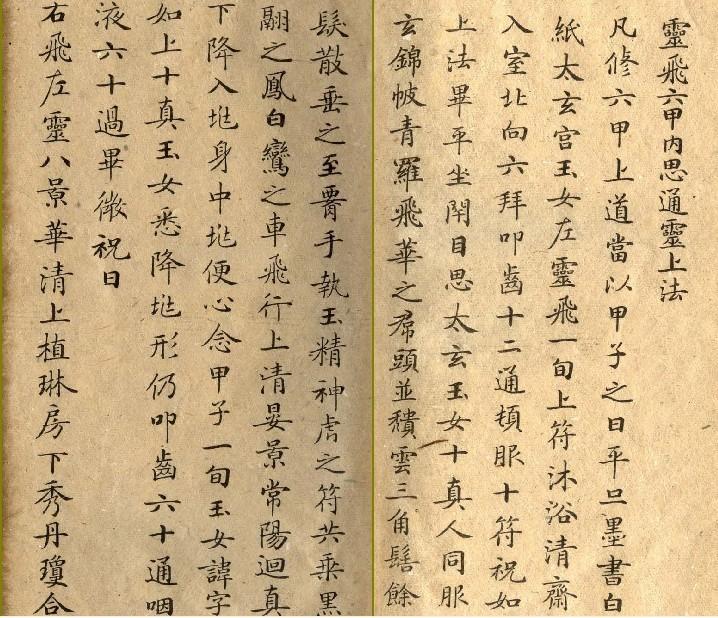 靈飛六甲內思通靈上法
凡修六甲上道當以甲子之日平旦墨書白
紙太玄宮玉女左靈飛一旬上符沐浴清齋
入室北向六拜叩齒十二通頓服十符祝如
上法畢平坐閇目思太玄玉女十真人同服
玄錦帔青羅飛華之帬頭並穨雲三角髻餘
髮散垂之至胷手執玉精神虎之符共乘黑
翮之鳳白鸞之車飛行上清晏景常陽迴真
下降入𡉄身中𡉄便心念甲子一旬玉女諱字
如上十真玉女悉降𡉄形仍叩齒六十通咽
液六十過畢微祝曰
右飛左靈八景華清上植琳房下秀丹瓊合